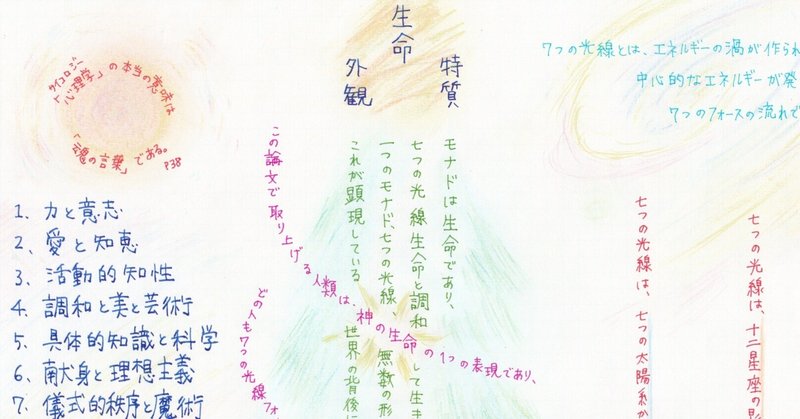 サイコロジー
「心理学」の本当の意味は
「魂の言葉」である。
P38
1、力と意志
2、愛と知恵
3、活動的知性
4、調和と美と芸術
5、具体的知識と科学
6、献身と理想主義
7、儀式的秩序と魔術
生命
特質
外観
モナドは生命であり、
七つの光線生命と調和して生き
一つのモナド、七つの光線、無数の形
これが顕現している世界の背後
この論文で取り上げる人類は、神の生命の1つの表現であり、
どの人も7つの光線フォ
7つの光線とは、エネルギーの渦が作られ
中心的なエネルギーが発
7つのフォースの流れで
七つの光線は、十二星座の影
七つの光線は、七つの太陽系か